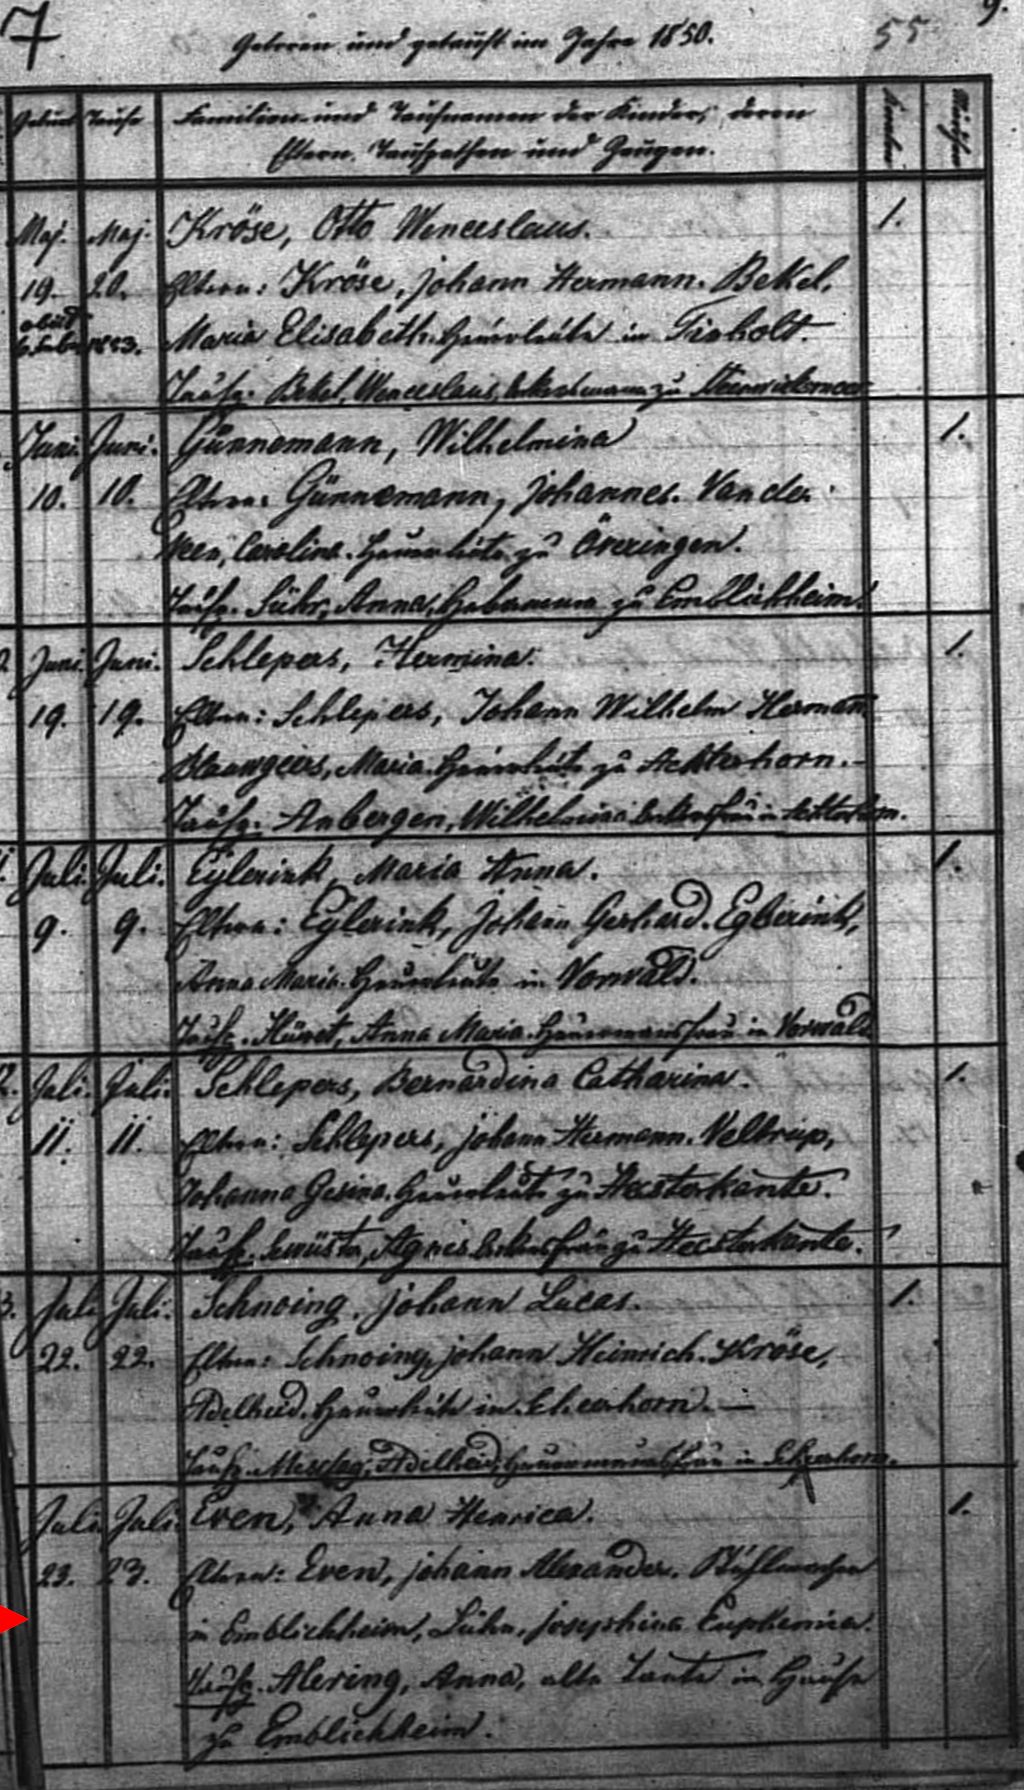 7
Geboren und getauft im Jahre 1850.
55
9.
Geburt Taufe Familien- und Taufnamen der Kinder, deren Kinder Mädchen
Eltern, Taufpathen und Zeugen.
Maj. Maj. Kröse, Otto Wenceslaus. 1.
19. 20. Eltern: Kröse, Johann Hermann. Bekel,
obiit 1853. Maria Elisabeth. Heuerleute in Tinholt.
Taufz. Bekel, Wenceslaus, zu
Juni. Juni. Günnemann, Wilhelmina 1.
10. 10. Eltern: Günnemann, Johannes. Van der
Veen, Carolina. Heuerleute zu Överingen.
Taufz. Sühr, Anna, Hebamme zu Emblichheim.
Juni. Juni. Schlepers, Hermina. 1.
19. 19. Eltern: Schlepers, Johann Wilhelm Hermann
Maria. Heuerleute zu Achterhorn.
Taufz. Anbergen, Wilhelmina in Achterhorn.
Juli. Juli. Eylerink, Maria Anna. 1.
9. 9. Eltern: Eylerink, Johann Gerhard. Egberink,
Anna Maria. Heuerleute in Vorwald.
Taufz. Anna Maria. Heuermannsfrau in Vorwald
Juli. Juli. Schlepers, Bernardina Catharina. 1.
11. 11. Eltern: Schlepers, Johann Hermann. Veltrup,
Johanna Gesina. Heuerleute zu Heesterkante.
Taufz. Agnes zu Heesterkante.
3. Juli Juli. Schnoing, Johann Lucas. 1.
22. 22. Eltern: Schnoing, Johann Heinrich. Kröse,
Adelheid. Heuerleute in Echerhorn. —
Taufz. Adelheid, Heuermannsfrau in
Juli. Juli. Even, Anna Henrica. 1.
23. 23. Eltern: Even, Johann Alexander.
in Emblichheim, Sühr, Josephina Euphemia.
Taufz. Alering, Anna, alte Tante im Hause
zu Emblichheim.